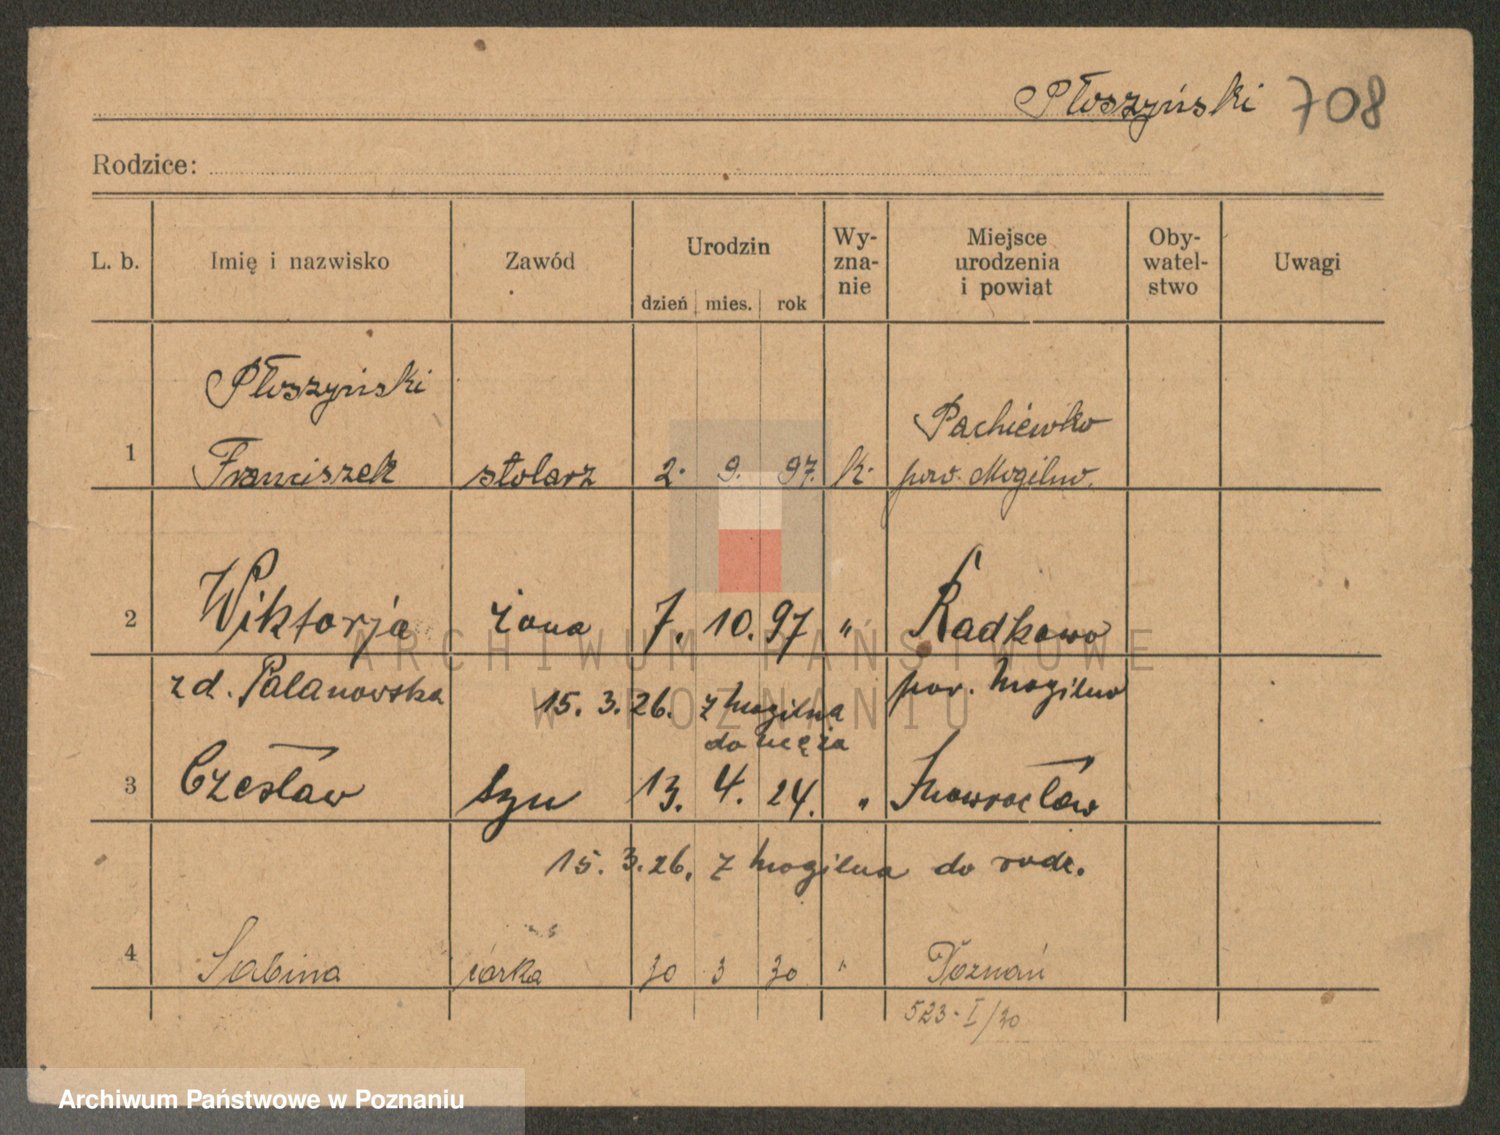 Płoszyński 708
Rodzice:
L. b. Imię i nazwisko Zawód Urodzin dzień mies. rok Wy-zna-nie Miejsce urodzenia i powiat Oby-watel-stwo Uwagi
Płoszyński
Pachiewko
1 Franciszek stolarz 2. 9. 97. k. pow. Mogilno.
2 Wiktorja żona 7. 10. 97 " Radkowo
zd. Palanowska 15. 3. 26. z Mogilna pow. Mogilno
do męża
3 Czesław syn 13. 4. 24. " Inowrocław
15. 3. 26. z Mogilna do rodz.
4 Sabina córka 30 3 30 " Poznań
523 - I/30
ARCHIWUM PAŃSTWOWE
W POZNANIU
Archiwum Państwowe w Poznaniu